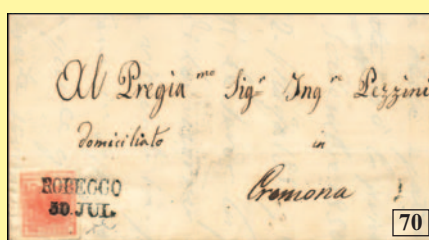 Al Pregia.mo Sig.r Ing.re Pezzini
domiciliato in
Cremona
ROBECCO
30 JUL.
70